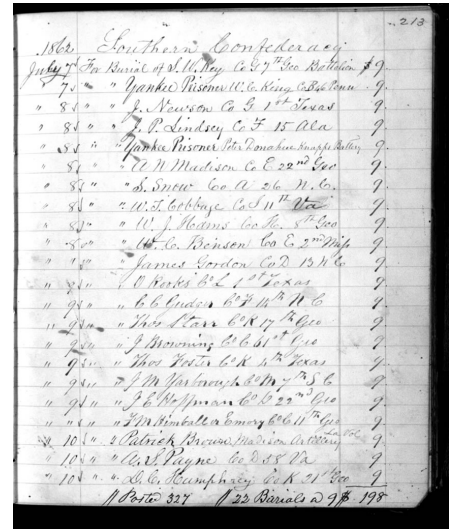 213
1862 Southern Confederacy
July 7 For Burial of S. W. Key Co G 7th Geo Battalion $ 9.
7 " " Yankee Prisoner W. C. King Co B 46 Penn 9.
" 8 " " J. Newson Co G 1st Texas 9.
" 8 " " J. P. Lindsey Co F 15 Ala 9.
" 8 " " Yankee Prisoner Peter Donahue Knapps Battery 9.
" 8 " " A N Madison Co E 22nd Geo 9.
" 8 " " S. Snow Co A 26 N. C. 9.
" 8 " " W. T. Cobbage Co I 11th Va 9.
" 8 " " W. J. Hams Co K. 8th Geo 9.
" 8 " " W. C. Benson Co E 2nd Miss 9.
" " " " James Gordon Co D 13 N C 9.
" " " O Rooks Co L 1st Texas 9.
" 9 " " C C Guder Co F 14th N C 9.
" 9 " " Thos Starr Co K 17th Geo 9.
" 9 " " J Browning Co C 61st Geo 9.
" 9 " " Thos Foster Co K 4th Texas 9.
" 9 " " J M Yarborough Co M 7th S C 9
" 9 " " J E Hoffman Co C 22nd Geo 9
" " " F M Kimball or Emory Co C 11th Geo 9
" 10 " " Patrick Brown Madison Artillery 9
" 10 " " A. S. Payne Co D 58 Va 9
" 10 " " D. C. Humphrey Co K 21st Geo 9
Posted 327 22 Burials a 9 $ 198